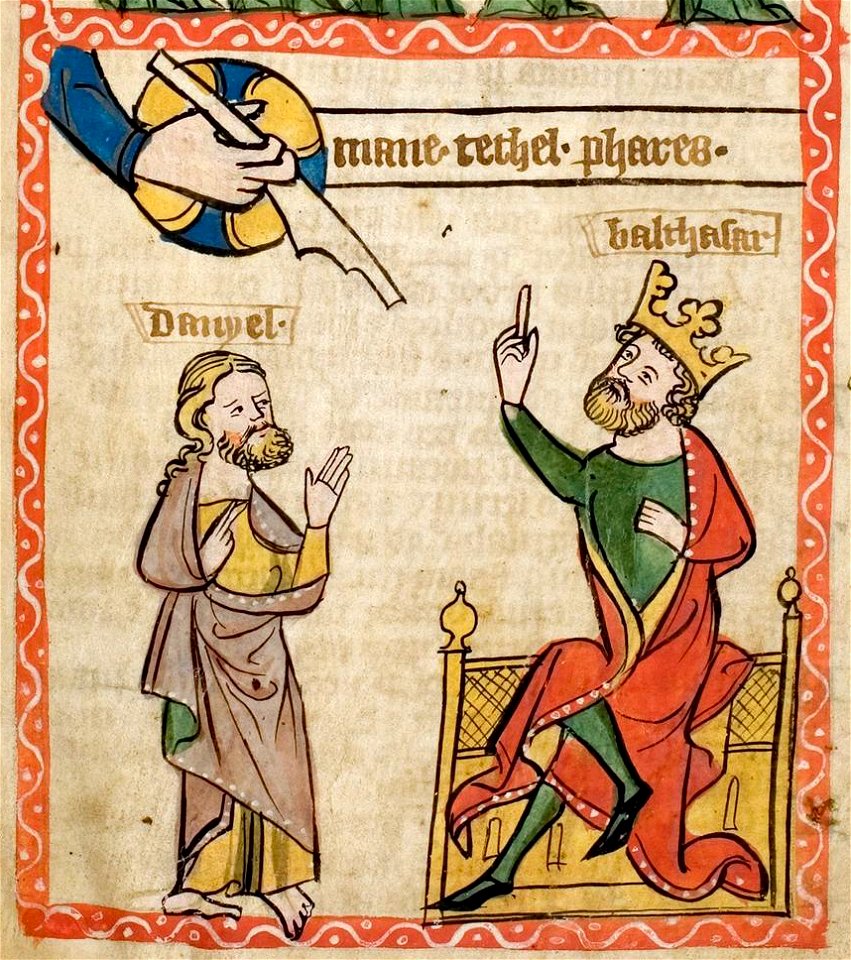 mane · tethel · phares ·
balthasar
Danyel ·